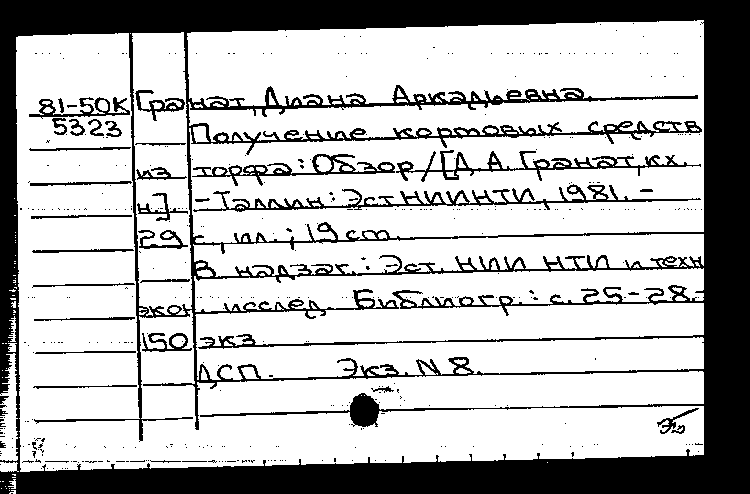 81-50К Гранат, Диана Аркадьевна.
5323 Получение кортовых средств
из торфа: Обзор / [Д. А. Гранат, к.х.
н.]. - Таллин: ЭстНИИНТИ, 1981. -
29 с., ил.; 19 cm.
В надзаг.: Эст. НИИ НТИ и техн
экон. исслед. Библиогр.: с. 25-28.-
150 экз
ДСП. Экз. N 8.